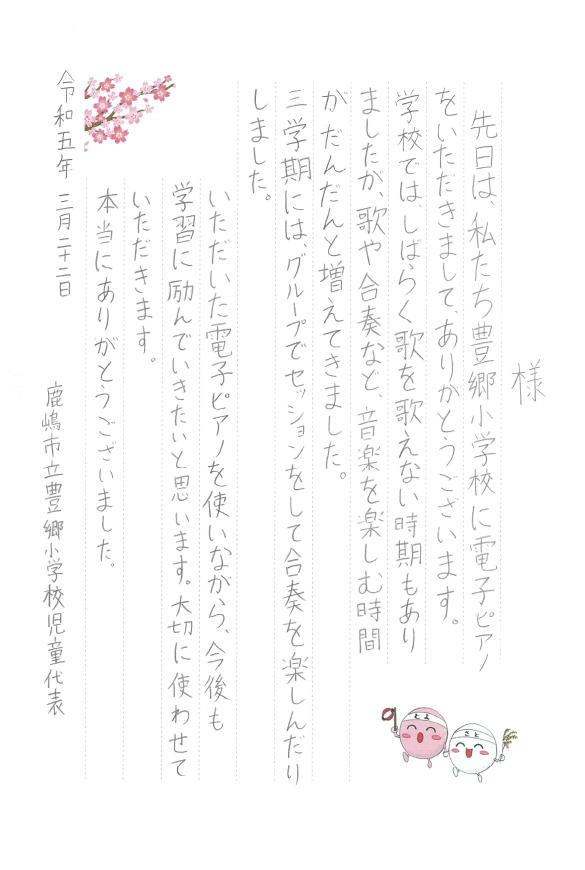 様
先日は、私たち豊郷小学校に電子ピアノ
をいただきまして、ありがとうございます。
学校では、しばらく歌を歌えない時期もあり
ましたが、歌や合奏など、音楽を楽しむ時間
がだんだんと増えてきました。
三学期には、グループでセッションをして合奏を楽しんだり
しました。
いただいた電子ピアノを使いながら、今後も
学習に励んでいきたいと思います。大切に使わせて
いただきます。
本当にありがとうございました。
令和五年 三月二十二日
鹿嶋市立豊郷小学校児童代表
とよ
さと